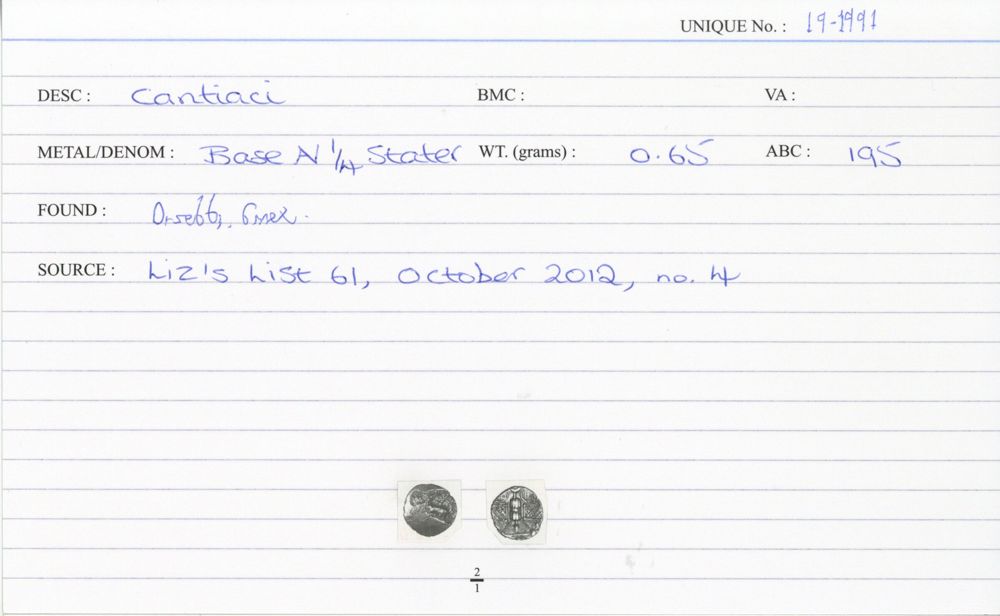 UNIQUE No. : 19-1991
DESC : Cantiaci BMC : VA :
METAL/DENOM : Base N 1/4 Stater WT. (grams) : 0.65 ABC : 195
FOUND : Orsett, Essex.
SOURCE : Liz's List 61, October 2012, no. 4
2
1